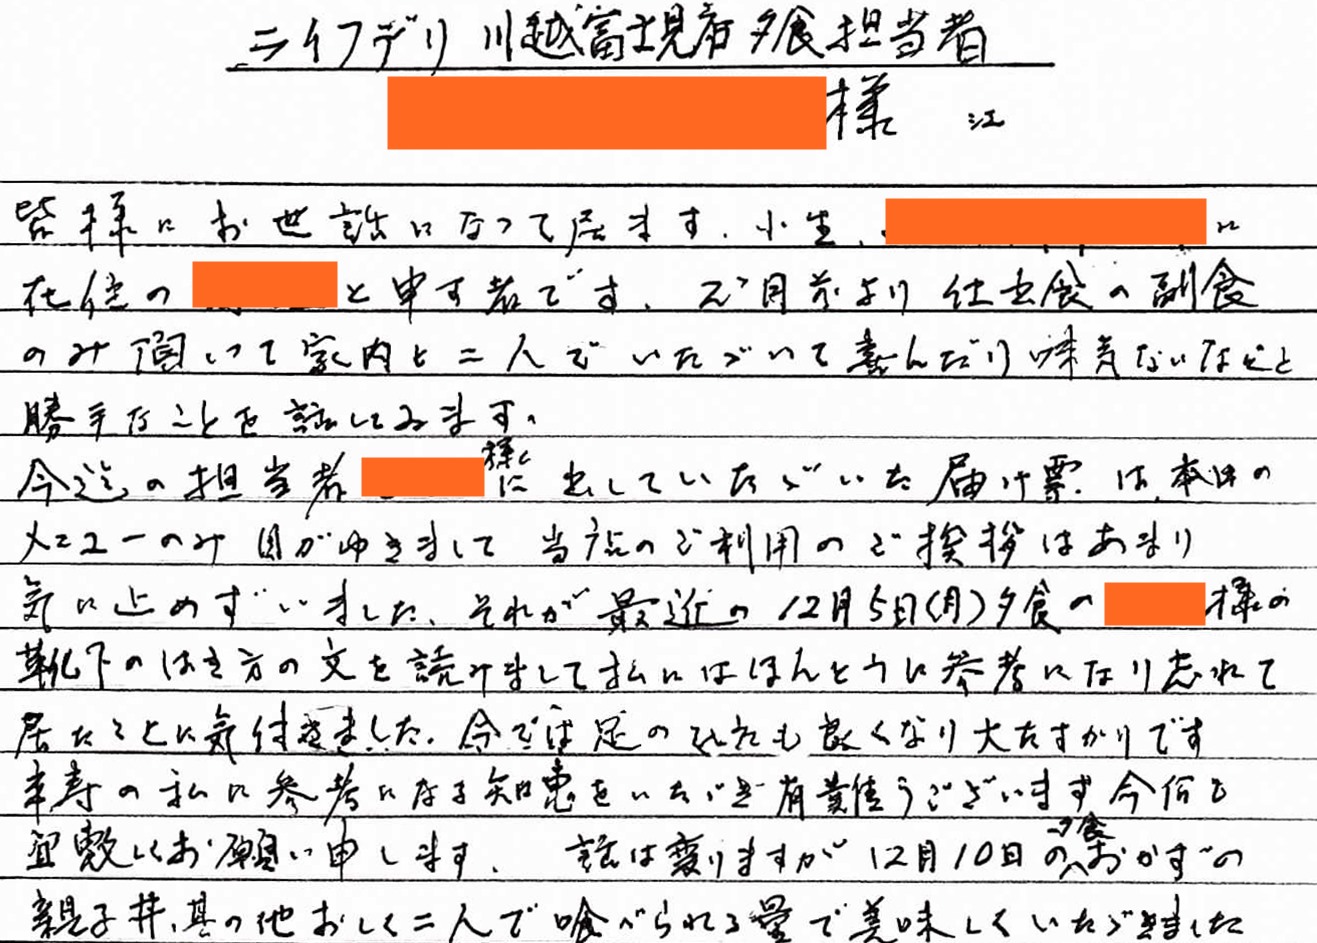 ライフデリ 川越富士見店 夕食担当者
様 江
皆様にお世話になって居ます、小生、に
在住のと申す者です、2ヶ月前より仕出食の副食
のみ頂いて家内と二人でいただいて喜んだり味気ないなどと
勝手なことを話してみます。
今迄の担当者様に出していただいた届け票は、本日の
メニューのみ目がゆきまして当店のご利用のご挨拶はあまり
気に止めずいました、それが最近の12月5日(月)夕食の様の
靴下のはき方の文を読みまして私にはほんとうに参考になり忘れて
居たことに気付きました、今では足のひえも良くなり大たすかりです
傘寿の私に参考になる知恵をいただき有難うございます今何も
宜敷くお願い申します、 話は変りますが12月10日の夕食おかずの
親子丼、其の他おしく二人で喰べられる量で美味しくいただきました